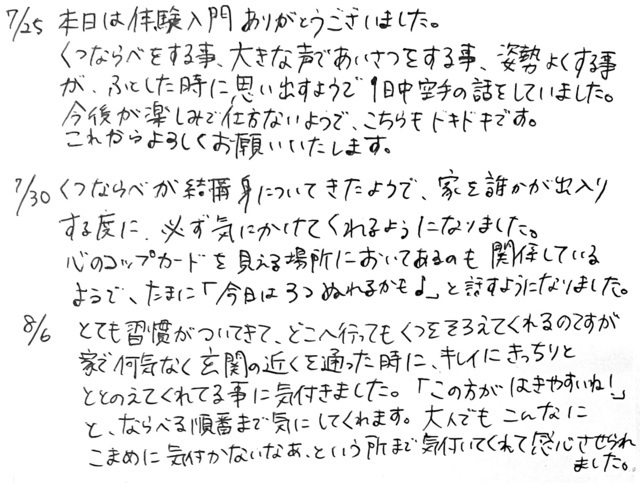 7/25 本日は体験入門ありがとうございました。
くつならべをする事、大きな声であいさつをする事、姿勢よくする事
が、ふとした時に思い出すようで1日中空手の話をしていました。
今後が楽しみで仕方ないようで、こちらもドキドキです。
これからよろしくお願いいたします。
7/30 くつならべが結構身についてきたようで、家を誰かが出入り
する度に、必ず気にかけてくれるようになりました。
心のコップカードを見える場所においてあるのも関係している
ようで、たまに「今日は3つぬれるかも♩」と話すようになりました。
8/6 とても習慣がついてきて、どこへ行ってもくつをそろえてくれるのですが
家で何気なく玄関の近くを通った時に、キレイにきっちりと
ととのえてくれてる事に気付きました。「この方がはきやすいね!」
と、ならべる順番まで気にしてくれます。大人でもこんなに
こまめに気付かないなあ、という所まで気付いてくれて感心させられ
ました。